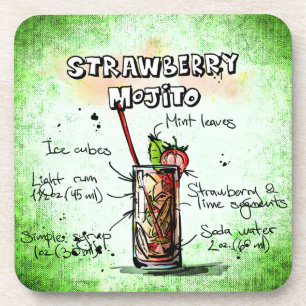 STRAWBERRY
MOJITO
Mint leaves
Ice cubes
Light rum
1 1/2 oz (45 ml)
Strawberry &
lime segments
Simple syrup
1 oz (30 ml)
Soda water
2 oz. (60 ml)